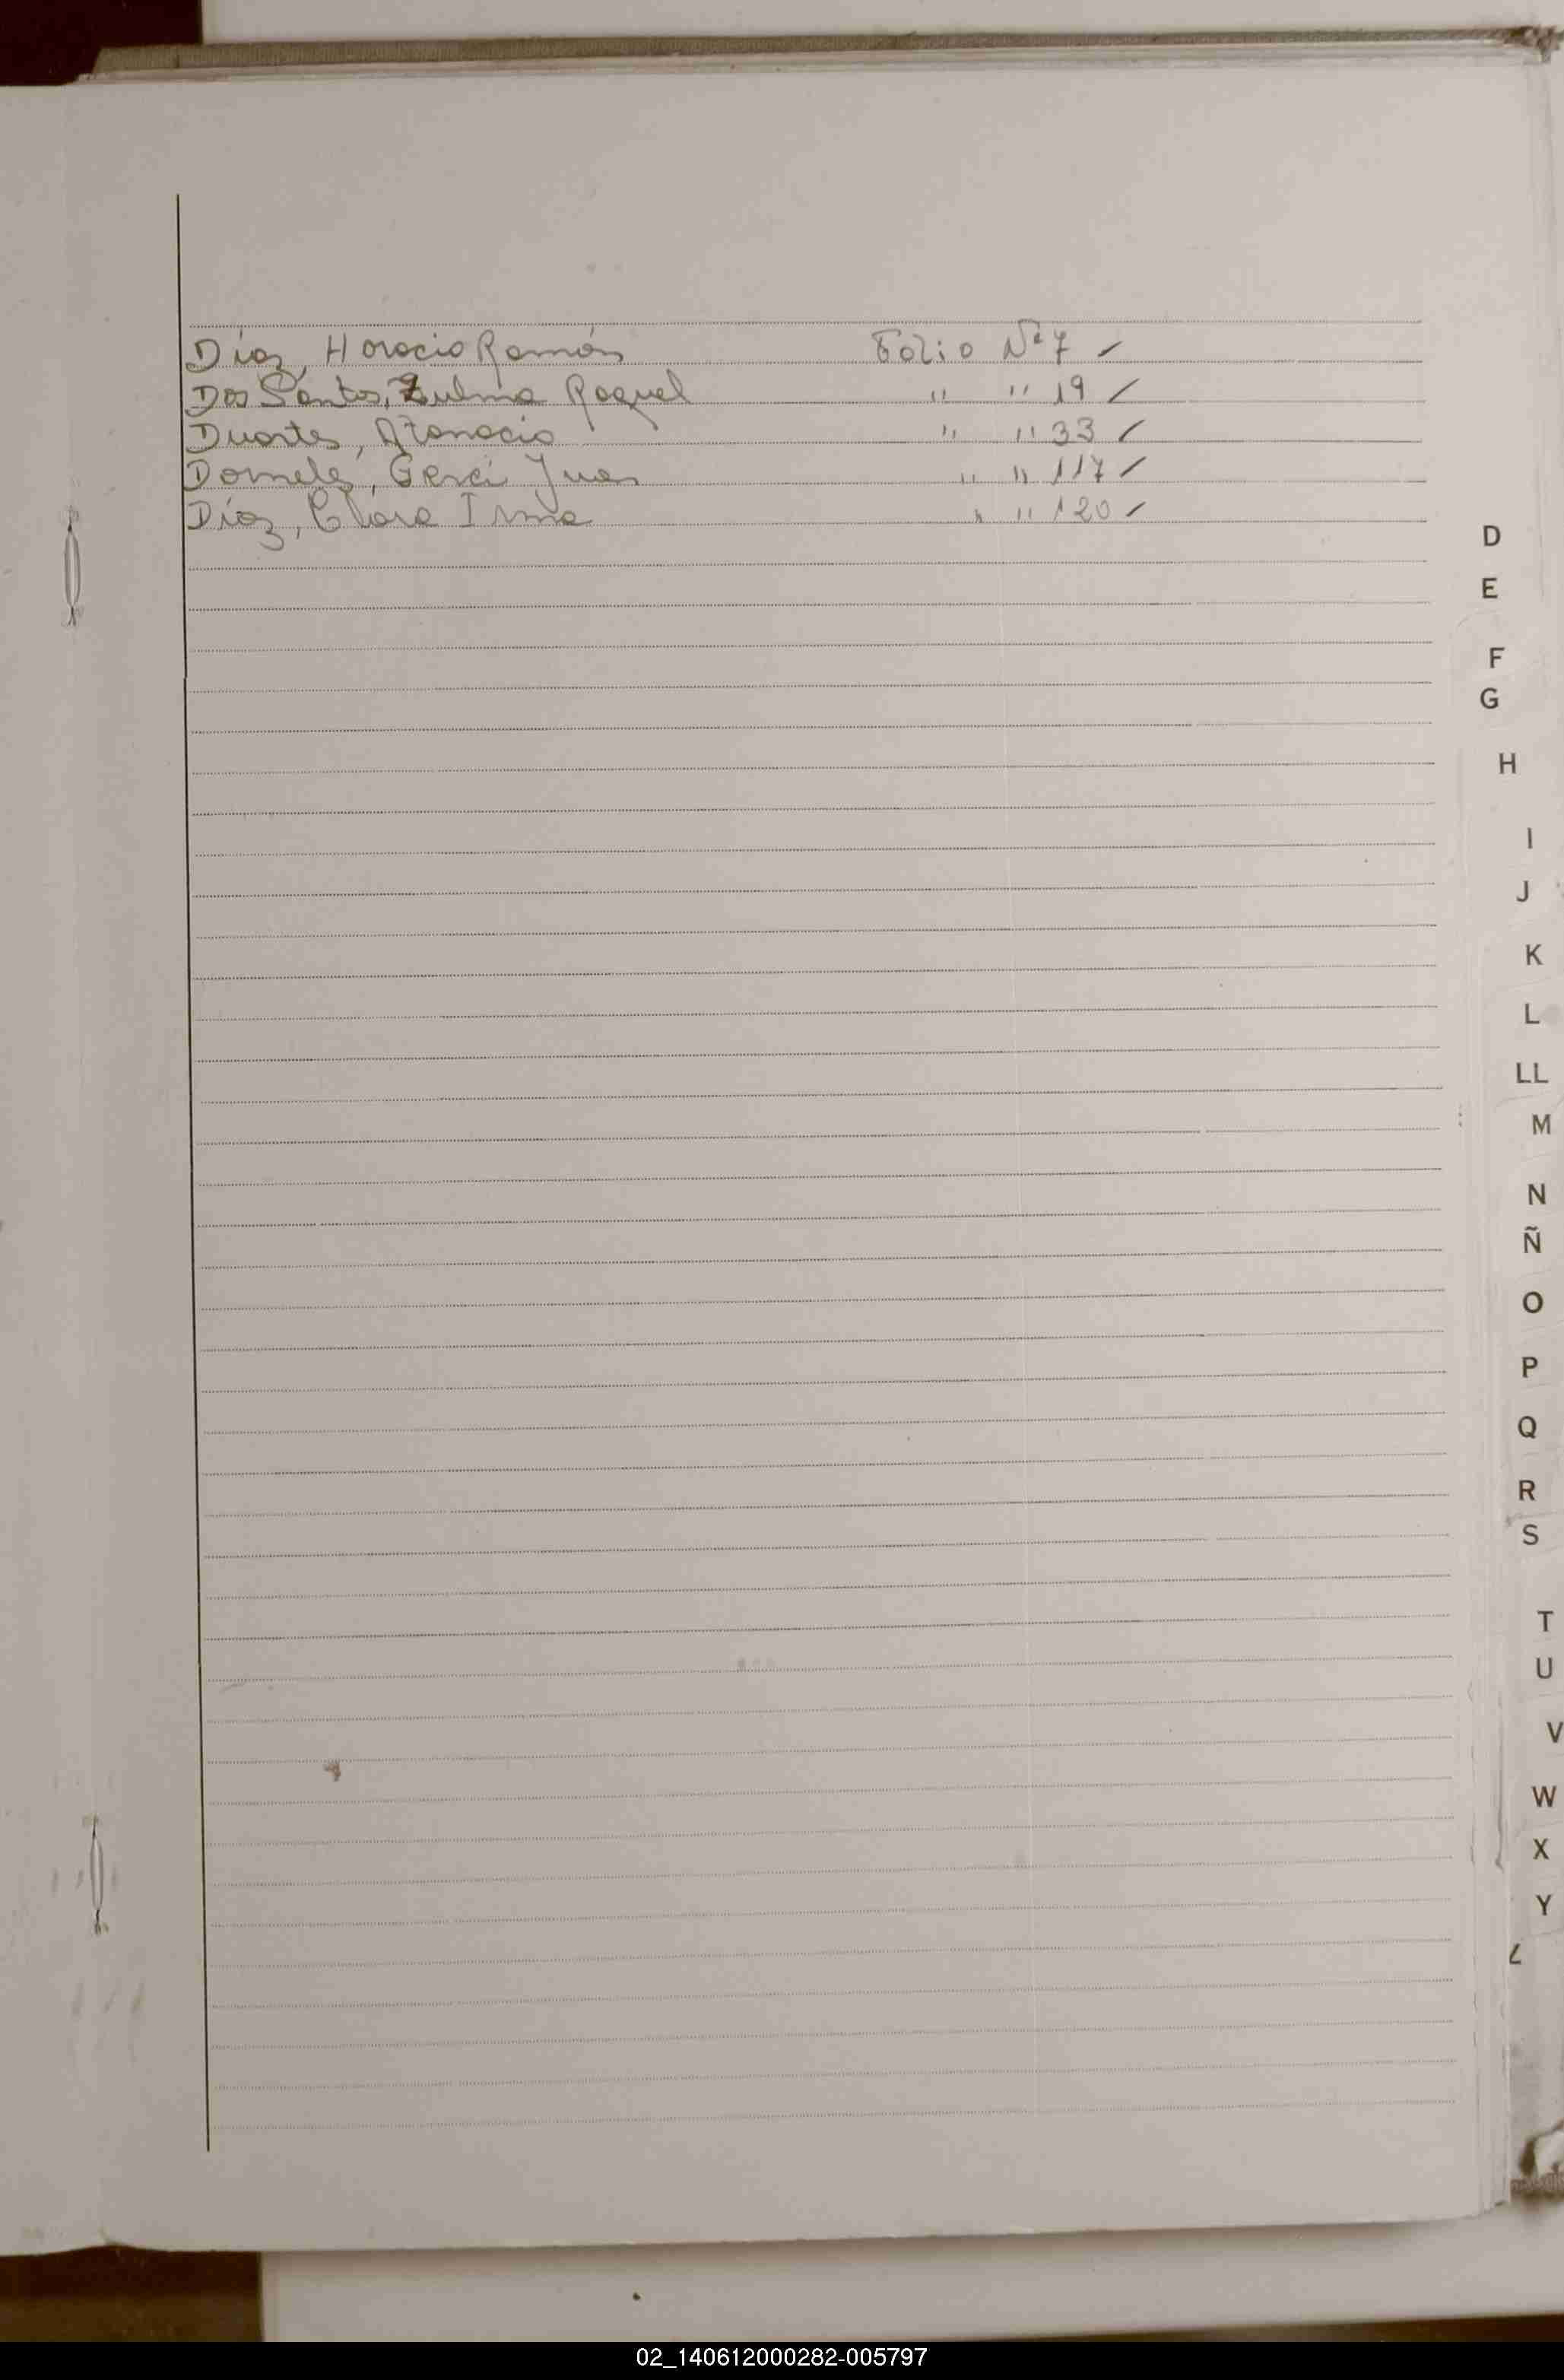 Díaz, Horacio Ramón Folio Nº 7 /
Dos Santos, Zulma Raquel " " 19 /
Duartes, Atanacio " " 33 /
Dornele, Gerci Juan " " 117 /
Díaz, Clara Irma " " 120 /
D
E
F
G
H
I
J
K
L
LL
M
N
Ñ
O
P
Q
R
S
T
U
V
W
X
Y
02_140612000282-005797